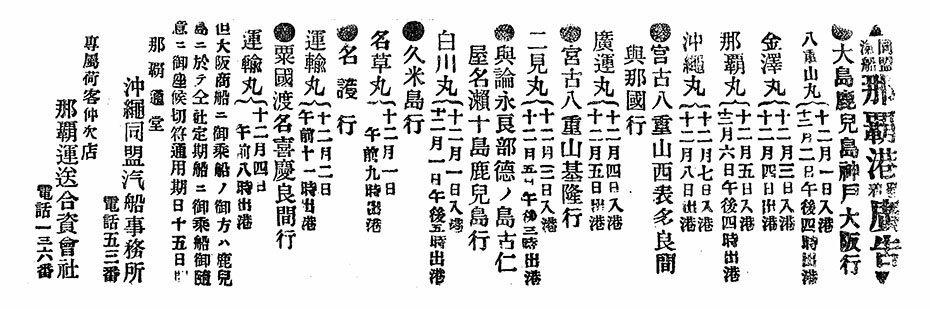 同盟
滊船
那覇港
廣告
●大島鹿兒島神戸大阪行
八重山丸
十二月一日入港
十二月二日午後四時出港
金澤丸
十二月三日入港
十二月五日出港
那覇丸
十二月六日午後四時出港
沖繩丸
十二月七日入港
十二月八日出港
●宮古八重山西表多良間
與那國行
廣運丸
十二月四日入港
十二月五日出港
●宮古八重山基隆行
二見丸
十二月三日入港
十二月五日午後三時出港
●與論永良部德ノ島古仁
屋名瀬十島鹿兒島行
白川丸
十二月一日入港
十二月一日午後五時出港
●久米島行
名草丸
十二月一日
午前九時出港
●名護行
運輸丸
十二月二日
午前十一時出港
●粟國渡名喜慶良間行
運輸丸
十二月四日
午前八時出港
但大阪商船ニ御乘船ノ御方ハ鹿兒
島ニ於テ仝社定期船ニ御乘船御隨
意ニ御座候切符通用期日十五日間
那覇通堂
沖繩同盟汽船事務所
電話五三番
專屬荷客仲次店
那覇運送合資會社
電話一三六番